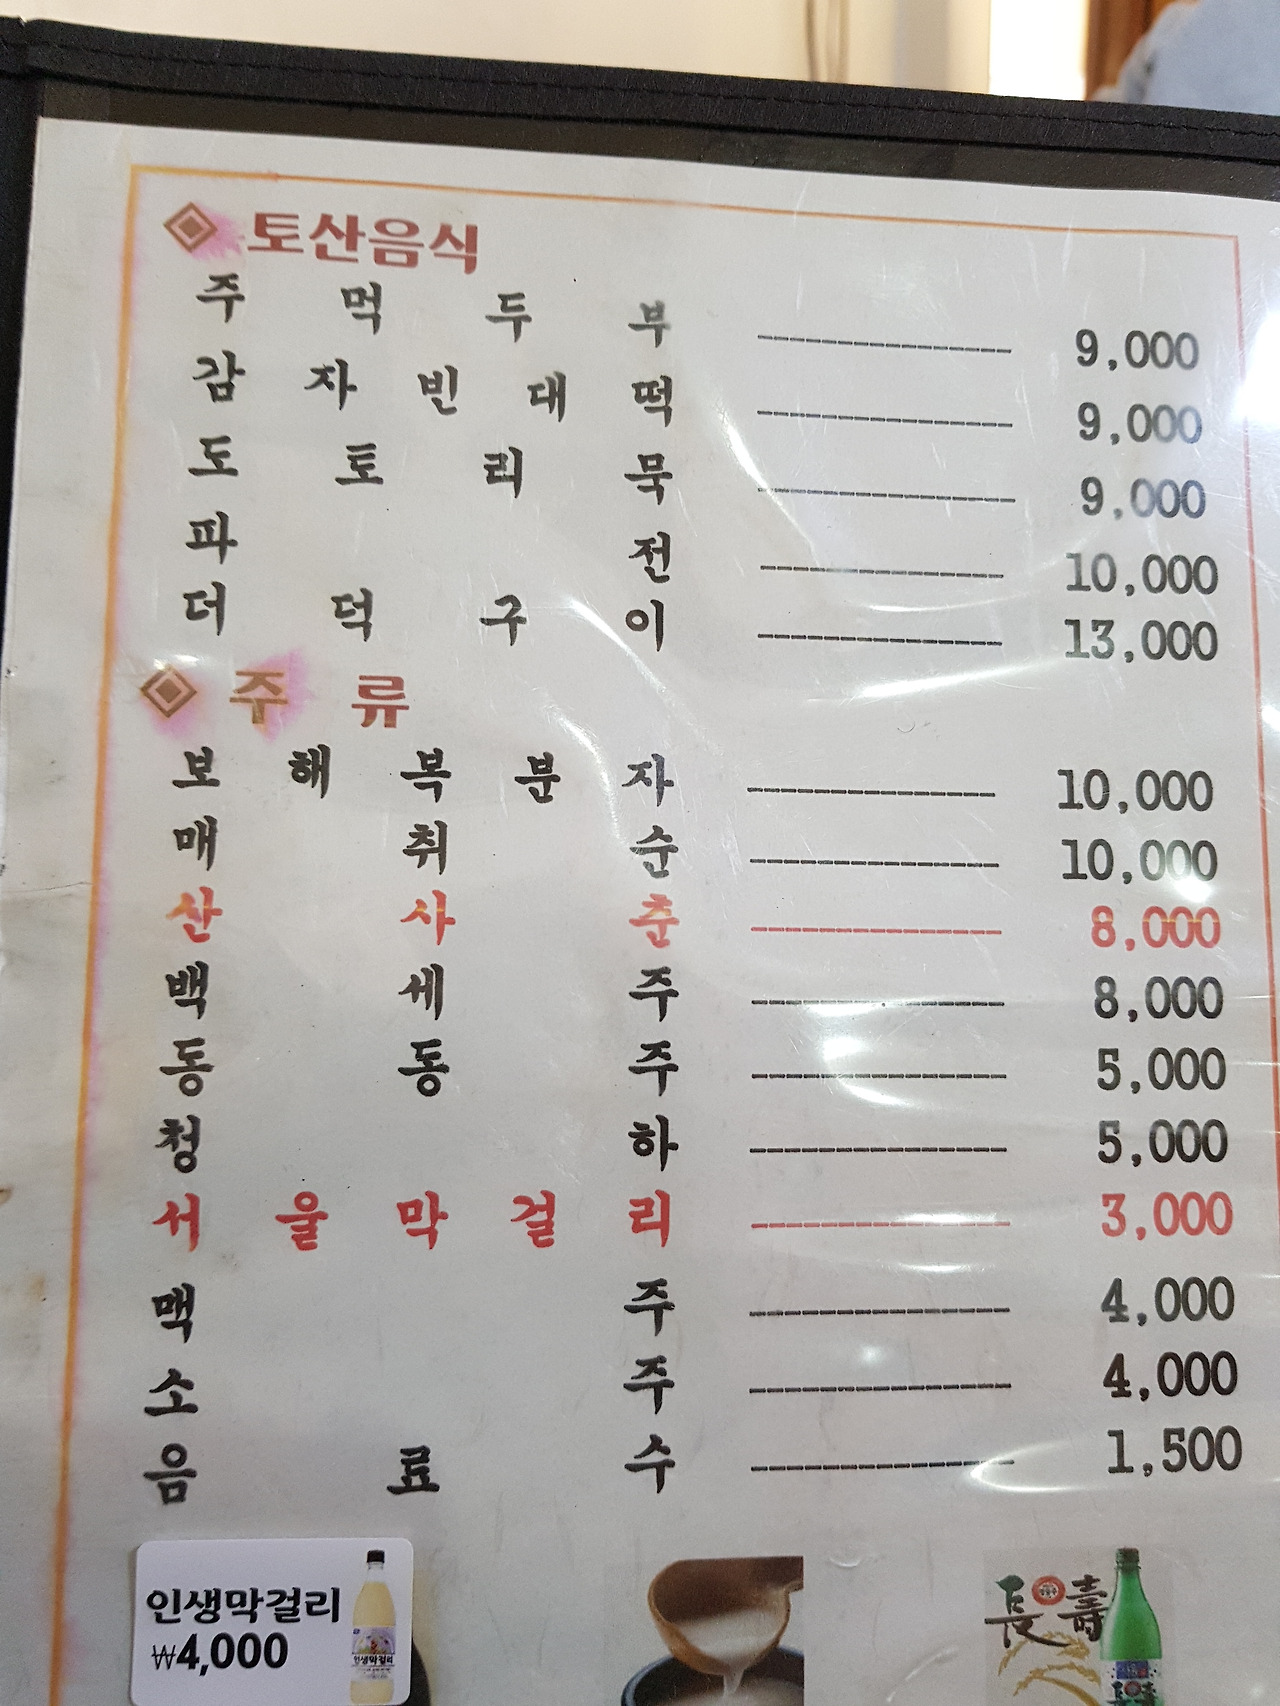 토산음식
주먹두부 9,000
감자빈대떡 9,000
도토리묵 9,000
파전 10,000
더덕구이 13,000
주류
보해복분자 10,000
매취순 10,000
산사춘 8,000
백세주 8,000
동동주 5,000
청하 5,000
서울막걸리 3,000
맥주 4,000
소주 4,000
음료수 1,500
인생막걸리
₩4,000
인생막걸리
長壽